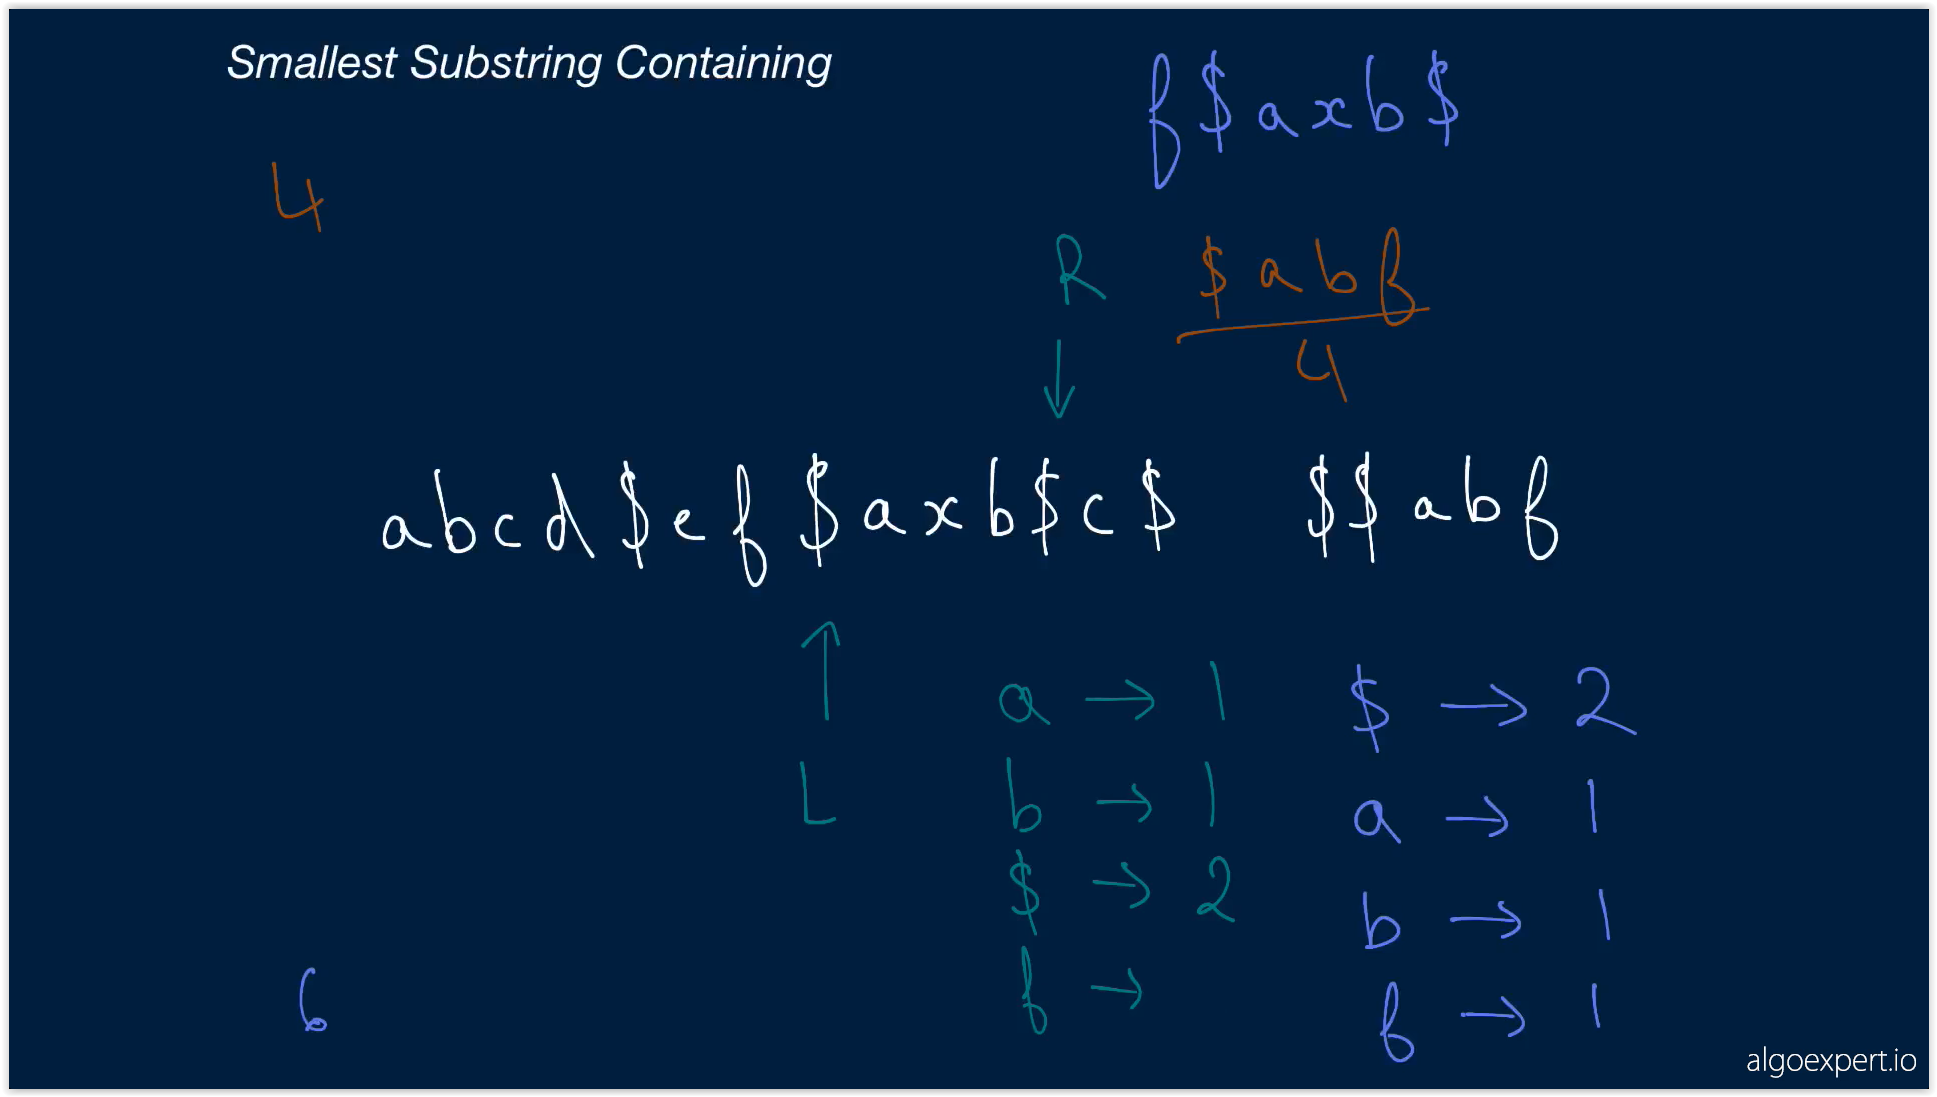 Smallest Substring Containing
f$axb$
4
R
$abf
4
abcd$ef$axb$c$ $$abf
L
a → 1
b → 1
$ → 2
f →
$ → 2
a → 1
b → 1
f → 1
6
algoexpert.io